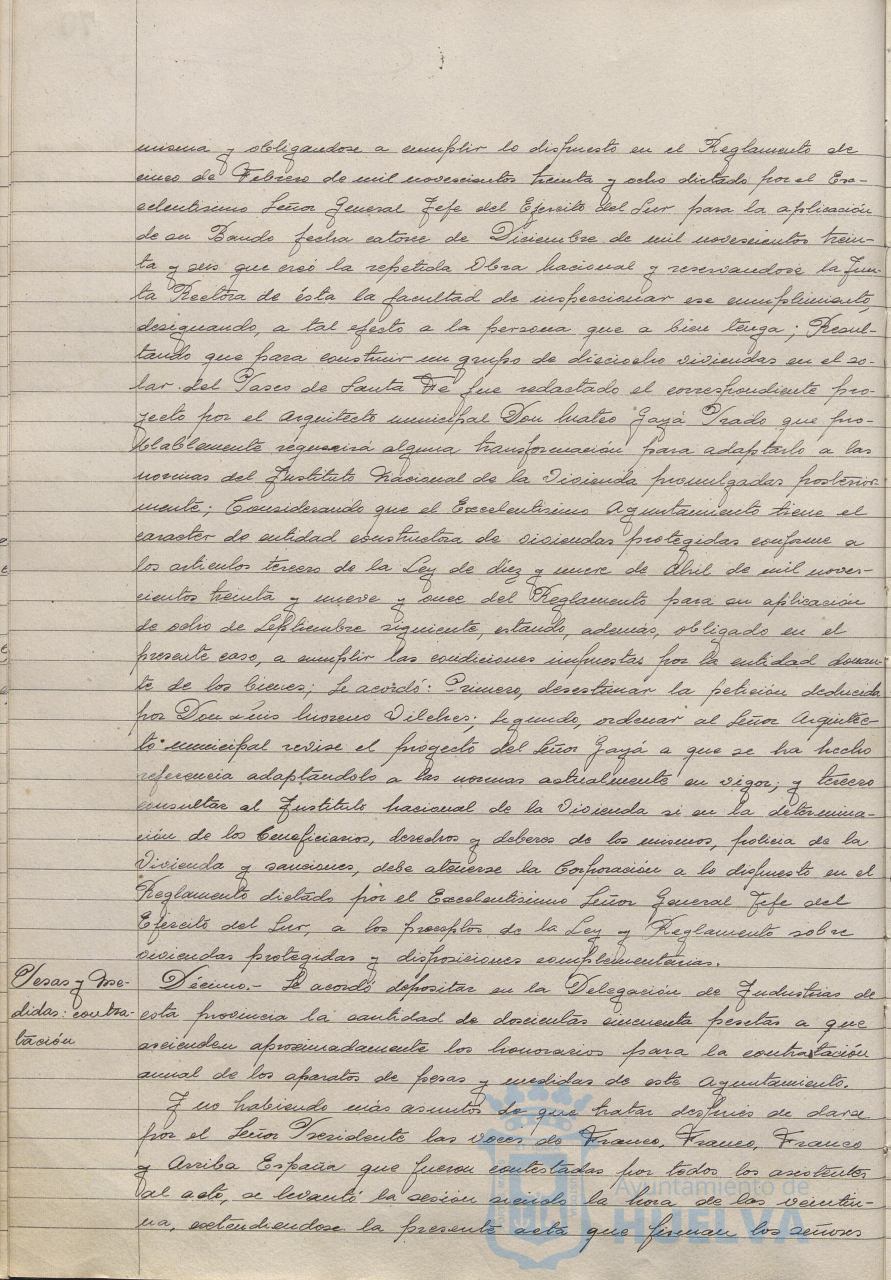 misma y obligandose a cumplir lo dispuesto en el Reglamento de
cinco de Febrero de mil novescientos treinta y ocho dictado por el Ex-
celentisimo Señor General Jefe del Ejercito del Sur para la aplicación
de su Bando fecha catorce de Diciembre de mil novescientos trein-
ta y seis que creó la repetida Obra Nacional y reservandose la Jun-
ta Rectora de ésta la facultad de inspeccionar ese cumplimiento,
designando, a tal efecto a la persona que a bien tenga; Resul-
tando que para construir un grupo de dieciocho viviendas en el so-
lar del Paseo de Santa Fe fue redactado el correspondiente pro-
yecto por el Arquitecto municipal Don Mateo Gayá Prado que pro-
blablemente requerirá alguna transformación para adaptarlo a las
normas del Instituto Nacional de la Vivienda promulgadas posterior-
mente; Considerando que el Excelentisimo Ayuntamiento tiene el
caracter de entidad constructora de viviendas protegidas conforme a
los articulos tercero de la Ley de diez y nueve de Abril de mil noves-
cientos treinta y nueve y once del Reglamento para su aplicación
de ocho de Septiembre siguiente, estando, además, obligado en el
presente caso, a cumplir las condiciones impuestas por la entidad donan-
te de los bienes; Se acordó: Primero, desestimar la petición deducida
por Don Luis Moreno Vilches; Segundo, ordenar al Señor Arquitec-
to municipal revise el proyecto del Señor Gayá a que se ha hecho
referencia adaptandolo a las normas actualmente en vigor; y tercero
consultar al Instituto Nacional de la Vivienda si en la determina-
ción de los Beneficiarios, derechos y deberes de los mismos, policia de la
Vivienda y sanciones, debe atenerse la Corporación a lo dispuesto en el
Reglamento dictado por el Excelentisimo Señor General Jefe del
Ejercito del Sur, a los preceptos de la Ley y Reglamento sobre
viviendas protegidas y disposiciones complementarias.
Pesas y Me-
didas: contra-
tación
Décimo.- Se acordó depositar en la Delegación de Industrias de
esta provincia la cantidad de doscientas cincuenta pesetas a que
ascienden aproximadamente los honorarios para la contratación
anual de los aparatos de pesas y medidas de este Ayuntamiento.
Y no habiendo más asuntos de que tratar después de darse
por el Señor Presidente las voces de Franco, Franco, Franco
y Arriba España que fueron contestadas por todos los asistentes
al acto, se levantó la sesión siendo la hora de las veintiu-
na, extendiendose la presente acta que firman los señores
Ayuntamiento de
HUELVA